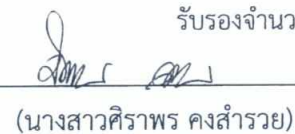 รับรองจำนว
(นางสาวศิราพร คงสำรวย)